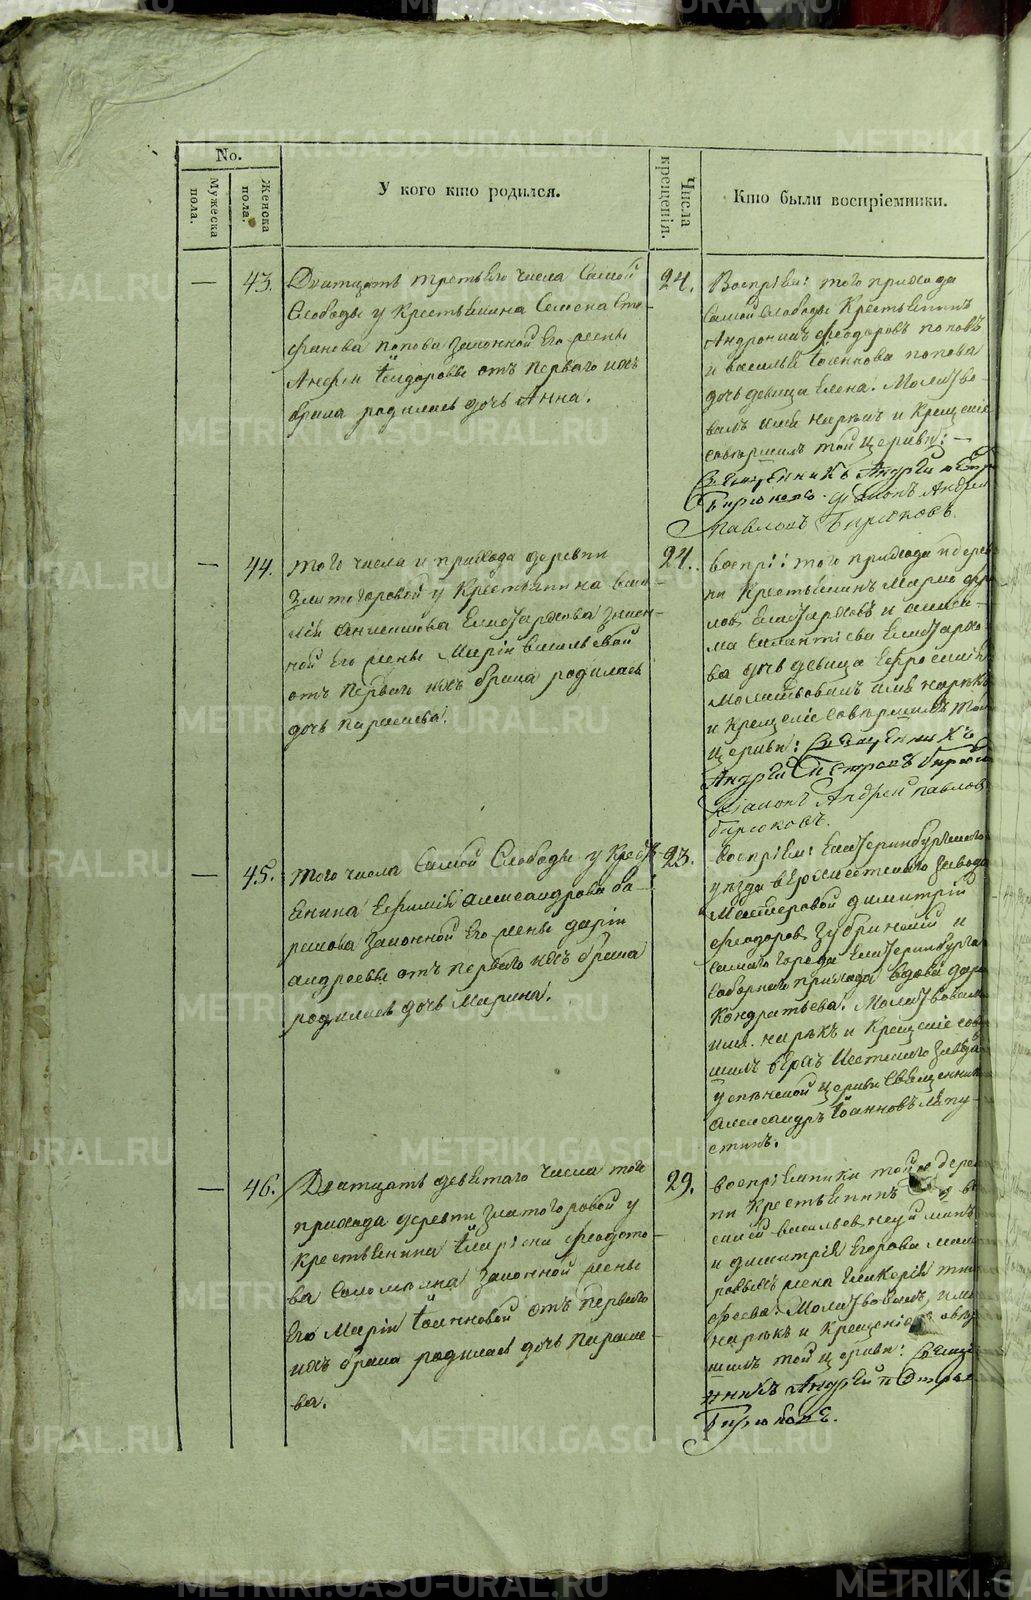 No.
Мужеска пола.
Женска пола.
У кого кто родился.
Числа крещенія.
Кто были воспріемники.
— 43.
Дватцать третьяго числа Самой
Слободы у Крестьянина Семена Сте
фанова Попова законной его жены
Ѳеодоровы отъ перваго ихъ
брака родилась дочь Анна.
24.
Воспріем: того прихода
самой слободы Крестьянинъ
Андроникъ Феодоровъ Поповъ
и Василья Іоаннова Попова
дочь девица Елена. Молитво
валъ имя нарѣкъ и Крещеніе
совершилъ той церкви: —
Священникъ Андрей Петр
Бирюковъ. діаконъ Андрей
Павловъ Бирюковъ.
— 44.
того числа и прихода деревни
Златогоровой у Крестьянина Васи-
лія Елизарьева закон-
ной его жены Маріи Васильевой
отъ перваго ихъ брака родилась
дочь Параскева.
24.
воспрі: той прихода и дерев
ни Крестьянинъ
и
дочь девица Ефросинія
Молитвовалъ имя нарѣкъ
и Крещеніе совершилъ той
церкви: Священникъ
Андрей Петровъ Бирюков
Діаконъ Андрей Павлов
Бирюковъ.
— 45.
того числа самой Слободы у Крестья
янина Ефимія Александрова
законной его жены Даріи
Андреевы отъ перваго ихъ брака
родилась дочь Марина.
23.
воспріем: Екатеринбургскаго
уѣзда Верхъ Исетскаго завода
Мастеровой Димитрій
Феодоров Зубринскій и
самаго города Екатеринбурга
соборнаго прихода вдова Дарья
Кондратьева. Молитвовалъ
имя нарѣкъ и Крещеніе совер
шилъ Верхъ Исетскаго завода
успѣнской церкви Священникъ
Александръ Іоанновъ Лѣпу-
стинъ.
— 46.
Дватцать девятаго числа того
прихода деревни Златогоровой у
Крестьянина Феодото-
ва законной жены
его Маріи Іоанновой отъ перваго
ихъ брака родилась дочь Параске
ва.
29.
воспріемники той дерев
ни Крестьянинъ
Васильев
и Димитрія Егорова
жена Гликерія Тимо
феева. Молитвовалъ, имя
нарѣкъ и Крещеніе совер
шилъ той церкви: Свяще
нникъ Андрей Петров
Бирюковъ.
METRIKI.GASO-URAL.RU